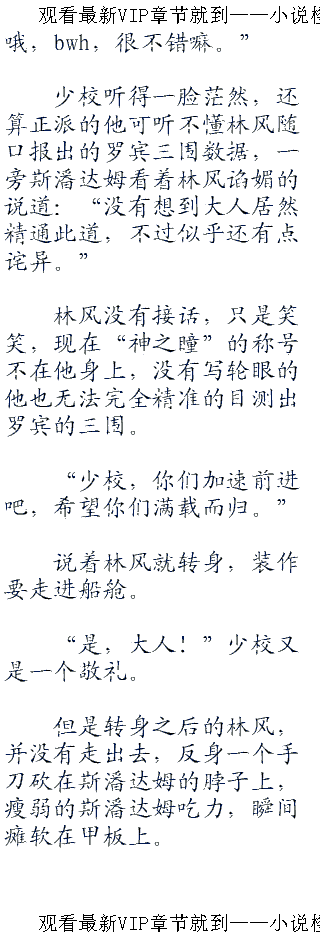 观看最新VIP章节就到——小说
哦，bwh，很不错嘛。”
少校听得一脸茫然，还
算正派的他可听不懂林风随
口报出的罗宾三围数据，一
旁斯潘达姆看着林风谄媚的
说道：“没有想到大人居然
精通此道，不过似乎还有点
诧异。”
林风没有接话，只是笑
笑，现在“神之瞳”的称号
不在他身上，没有写轮眼的
他也无法完全精准的目测出
罗宾的三围。
“少校，你们加速前进
吧，希望你们满载而归。”
说着林风就转身，装作
要走进船舱。
“是，大人！”少校又
是一个敬礼。
但是转身之后的林风，
并没有走出去，反身一个手
刀砍在斯潘达姆的脖子上，
瘦弱的斯潘达姆吃力，瞬间
瘫软在甲板上。
观看最新VIP章节就到——小说